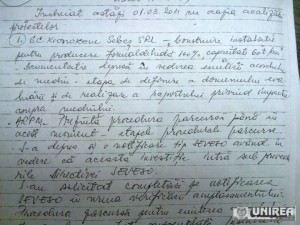 Încheiat astăzi 01.03.2011 cu ocazia analizării
proiectelor
1) SC Kronochem Sebeș SRL - construire instalație
pentru producere formaldehidă 100%, capacitate 60t/an
Documentație depusă în vederea emiterii acordului
de mediu - etapa de definire a domeniului eva
luării și de realizare a raportului privind impactul
asupra mediului.
ARPM - Prezintă procedura parcursă până în
acest moment - etapele procedurale parcurse
S-a depus și o notificare tip SEVESO având în
vedere că această investiție intră sub prevede
rile Directivei SEVESO.
S-au solicitat completări la notificarea
SEVESO în urma verificării amplasamentului.
Procedura parcursă pentru emiterea
UNIREA